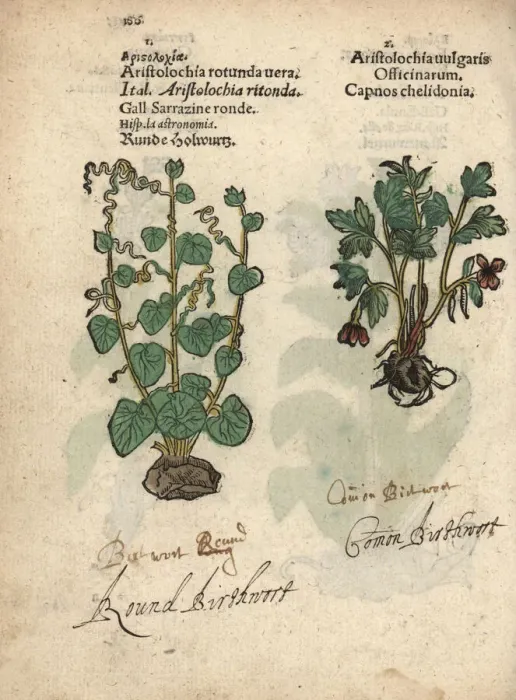 186.
1.
Αριςολοχία.
Aristolochia rotunda uera.
Ital. Aristolochia ritonda.
Gall Sarrazine ronde.
Hisp. la astronomia.
Runde Holwurtz.
2.
Aristolochia uulgaris
Officinarum.
Capnos chelidonia.
Comōn Birtwort
Comōn Birthwort
Birtwort Round
Round Birthwort